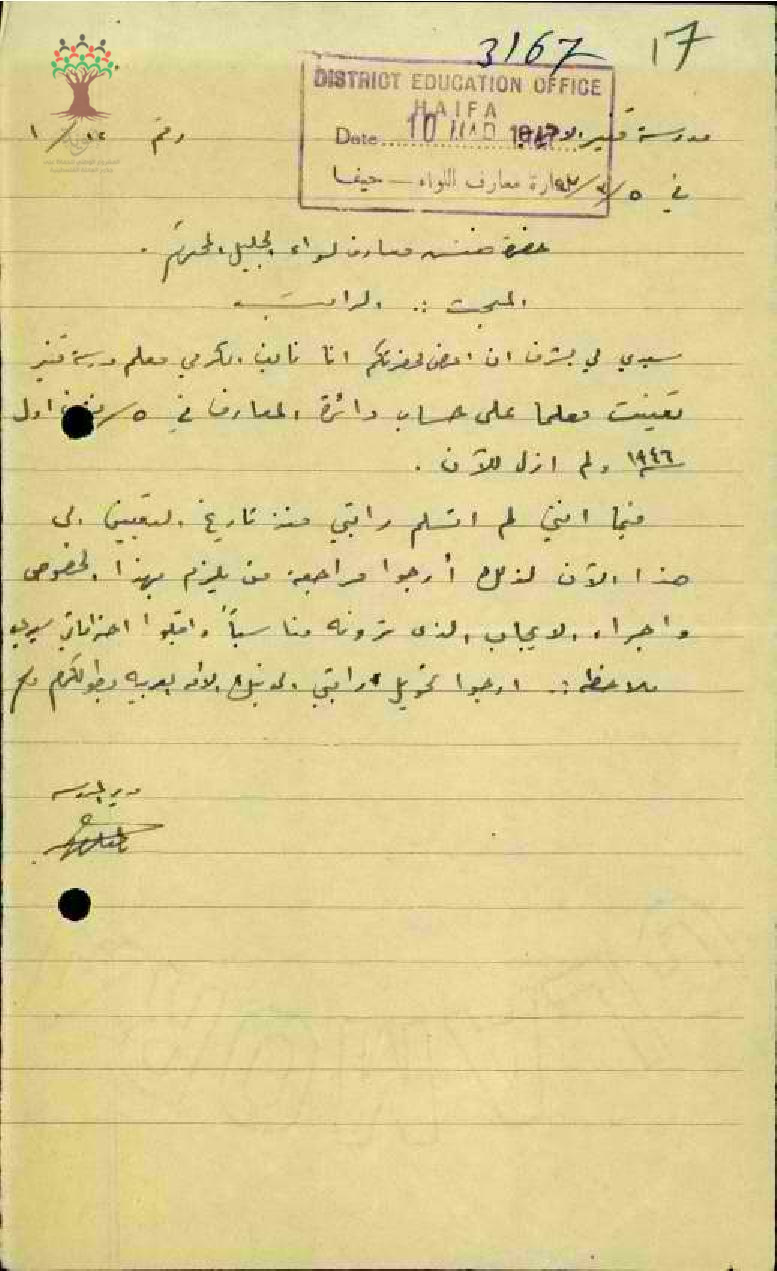 3167
17
DISTRICT EDUCATION OFFICE
HAIFA
Date 10 MAR 1947
ادارة معارف اللواء — حيفا
مدرسة قنير الاميرية رقم ١٢/١
في ٥/٣/٤٧
حضرة مفتش معارف لواء الجليل المحترم .
المبحث :. الراتب
سيدي لي الشرف ان اعرض لحضرتكم انا الكرمي معلم مدرسة قنير
تعينت معلما على حساب دائرة المعارف في ٥/ تشرين اول
١٩٤٦ ولم ازل للآن .
فبما انني لم استلم راتبي منذ تاريخ التعيين الى
هذا الآن لذلك أرجوا مراجعة من يلزم بهذا الخصوص
واجراء الايجاب الذي ترونه مناسباً واقبلوا احتراماتي سيدي
ملاحظة :. ارجوا تحويل راتبي الى بنك الامة العربية بطولكرم
مدير المدرسة